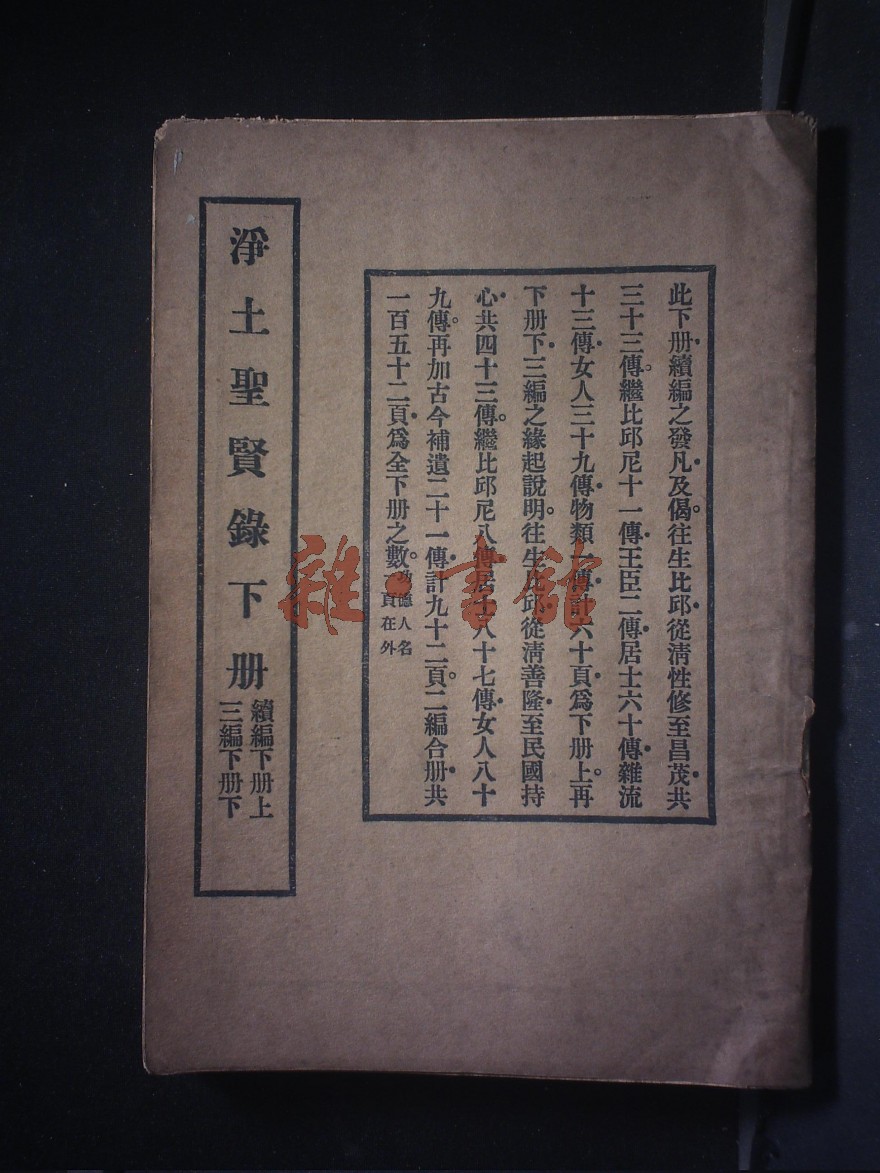 此下册續編之發凡及偈。往生比邱從清性修至昌茂共
三十三傳。繼比邱尼十一傳王臣二傳居士六十傳雜流
十三傳女人三十九傳物類一傳計六十頁爲下册上。再
下册下三編之緣起說明。往生比邱從清善隆至民國持
心共四十三傳。繼比邱尼八傳居士八十七傳女人八十
九傳。再加古今補遺二十一傳計九十二頁。二編合册共
一百五十二頁爲全下册之數。功德人名
頁在外
淨土聖賢錄下册
續編下册上
三編下册下
雜·書館